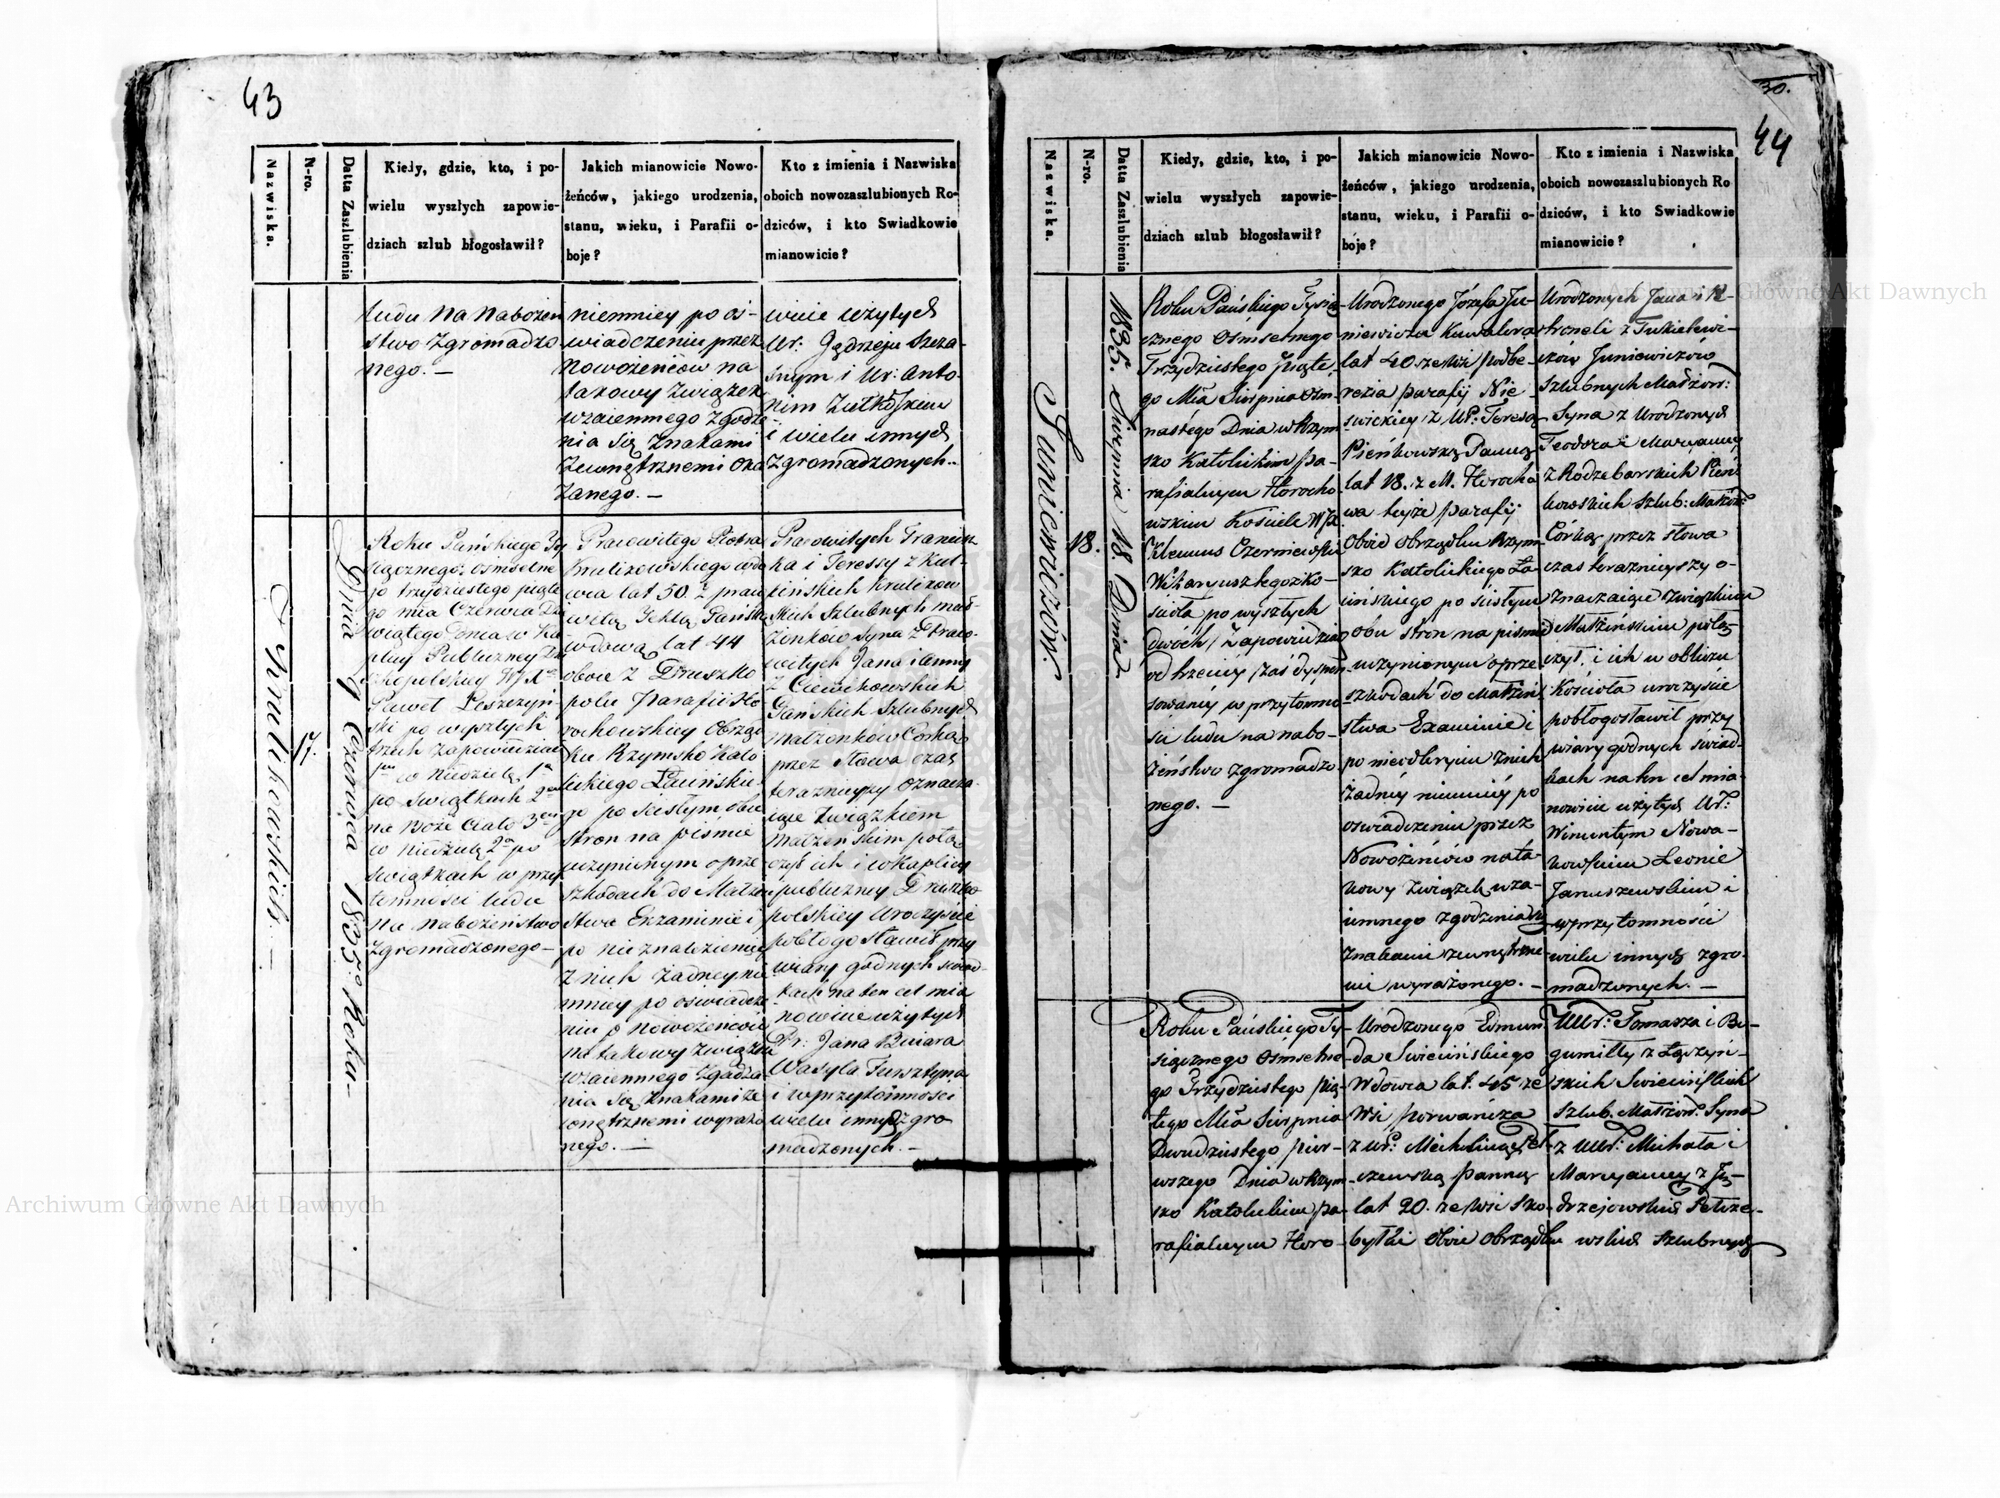 43
Nazwiska.
N-ro.
Datta Zaszlubienia
Kiedy, gdzie, kto, i po-
wielu wyszłych zapowie-
dziach szlub błogosławił?
Jakich mianowicie Nowo-
żeńców, jakiego urodzenia,
stanu, wieku, i Parafii o-
boje?
Kto z imienia i Nazwiska
oboich nowozaszlubionych Ro-
dziców, i kto Swiadkowie
mianowicie?
ludu na nabożeń
stwo zgromadzo
nego. —
niemniey po oś-
wiadczeniu przez
Nowożeńców na
takowy związek
wzaiemnego zgodze
nia się znakami
zewnętrznemi oka
zanego. —
wcie użytych
Ur: Jędrzeju Szcza-
snym i Ur: Anto-
nim
i wielu innych
zgromadzonych.-
Krulikowskich. —
17.
Dnia 9 Czerwca 1835o Roku —
Roku Pańskiego Ty
siącznego ośmsetne
go trzydziestego piąte
go mca Czerwca Dzie
wiątego Dnia w Ka
plicy Publiczney Dru
szkopolskiey WJX
Paweł Leszczyń
ski po wyszłych
trzech zapowiedziach
w Niedzielę 1a
po Swiątkach 2
na Boże Ciało 3
w Niedzielę 2a po
swiątkach w przy
tomności ludu
na nabożeństwo
zgromadzonego —
Pracowitego Piotra
Krulikowskiego wdo
wca lat 50. z praco
witą Teklą Gańską
wdową lat 44
oboie z Druszko
polu Parafii Ho
rochowskiey Obrząd
ku Rzymsko Kato
lickiego Łacińskie
go po scisłym obu
stron na piśmie
uczynionym o prze
szkodach do Małżeń
stwa Exzaminie i
po nieznalezieniu
z nich żadney nie
mniey po oświadcze
niu p Nowożeńców
na takowy związek
wzaiemnego zgadza
nia się znakami ze
wnętrznemi wyrażo
nego. —
Pracowitych Francisz
ka i Teressy z Kul-
Krulikow
skich szlubnych mał
żonkow Syna z Praco-
witych Jana i Anny
z
Gańskich szlubnych
Małżonków Corką
przez słowa czas
teraznieyszy oznacza
iące związkiem
małżeńskim połą
czył ich i w Kaplicy
publiczney Druszko
polskiey uroczyscie
pobłogosławił przy
wiary godnych swiad-
kach na ten cel mia
nowicie użytych
Pr: Jana
Wasyla
i w przytomności
wielu innych zgro
madzonych. —
30.
44
Nazwiska.
N-ro.
Datta Zaszlubienia
Kiedy, gdzie, kto, i po-
wielu wyszłych zapowie-
dziach szlub błogosławił?
Jakich mianowicie Nowo-
żeńców, jakiego urodzenia,
stanu, wieku, i Parafii o-
boje?
Kto z imienia i Nazwiska
oboich nowozaszlubionych Ro
dziców, i kto Swiadkowie
mianowicie?
Juniewiczów.
18.
1835. Sierpnia 18. Dnia
Roku Pańskiego Tysią-
cznego Ośmsetnego
Trzydziestego piąte-
go Mca Sierpnia ośm
nastego Dnia w Rzym
sko Katolickim pa-
rafialnym Horocho-
wskim Kościele WJX.
Klemens Czerniewski
Wikaryusz tegoż Ko-
scioła po wyszłych
dwóch Zapowiedziach
od trzeciey zaś dyspen
sowaney w przytomno
ści ludu na nabo-
żeństwo zgromadzo
nego. —
Urodzonego Józefa Ju-
niewicza Kawalera
lat 40 ze wsi Podbe-
rezia parafij Nie-
swickiey z UP: Teresą
Pieńkowską Panną
lat 18. z M. Horocho
wa teyże parafij
oboie obrządku Rzym
sko Katolickiego Ła
cińskiego po scisłym
obu stron na pismie
uczynionym o prze-
szkodach do Małżeń
stwa Examinie i
po nieodkryciu z nich
żadney niemniey po
oświadczeniu przez
Nowożeńców na ta-
kowy związek wza-
iemnego zgodzenia się
znakami zewnętrzne-
mi wyrażonego. —
Urodzonych Jana i Pe-
troneli z Tukielewi-
czów Juniewiczów
szlubnych Małżon:
Syna z Urodzonych
Teodora i Maryanny
z Rodzeborskich Pień
kowskich szlub: Małżon
Córką przez słowa
czas teraznieyszy o-
znaczaiące związkiem
Małżeńskim połą-
czył, i ich w obliczu
Kościoła uroczyscie
pobłogosławił przy
wiary godnych świad-
kach na ten cel mia-
nowicie użytych Ur:
Wincentym Nowa-
kowskim Leonie
Januszewskim i
w przytomności
wielu innych zgro-
madzonych. —
Roku Pańskiego Ty-
siącznego Ośmsetne
go Trzydziestego pią-
tego Mca Sierpnia
Dwudziestego pier-
wszego Dnia w Rzym
sko Katolickim pa-
rafialnym Horo-
Urodzonego Edmun
da Swiecińskiego
Wdowca lat 45 ze
Wsi Porwańcza
z Ur: Michaliną Pet-
rzewską panną
lat 20. ze wsi Sko-
byłki oboie obrządku
UUr: Tomasza i Bo-
gumilły z Łączyń-
skich Swiecińskich
szlub. Małżon: Syna
z UUr: Michała i
Maryanny z Ję-
drzejowskich Petrze-
wskich szlubnych